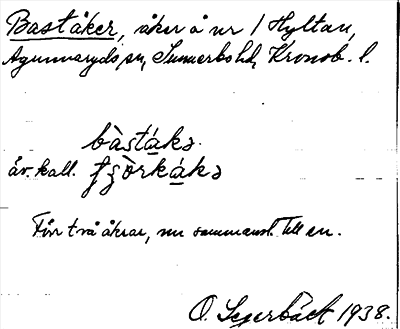 Baståker, åker å nr 1 Hyltan,
Agunnaryds sn, Sunnerbo hd, Kronob. l.
bàstákə.
äv. kall. fjòrkákə
Förr två åkrar, nu sammansl. till en.
O. Segerbäck 1938.